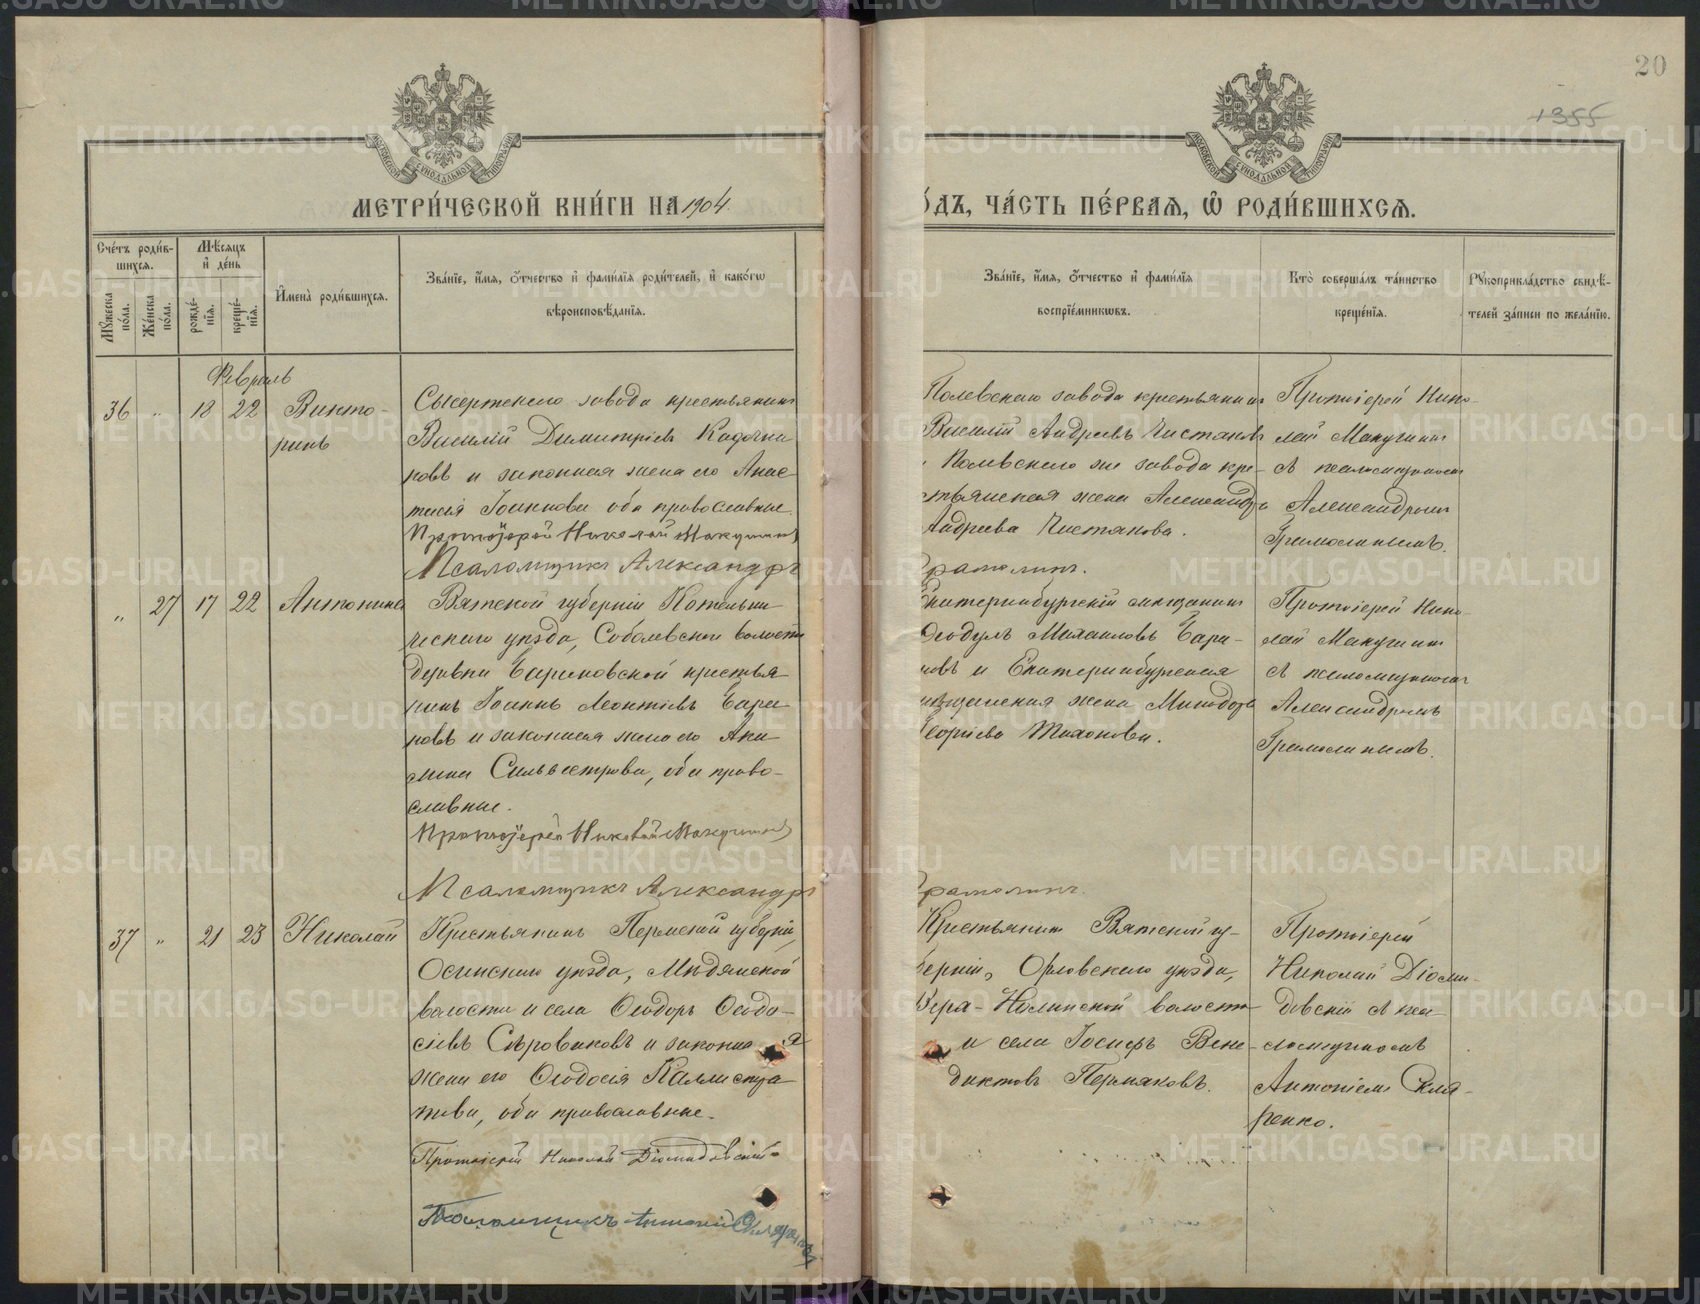 20
1355
МОСКОВСКОЙ СѴНОДАЛЬНОЙ ТИПОГРАФІИ
МОСКОВСКОЙ СѴНОДАЛЬНОЙ ТИПОГРАФІИ
МЕТРИ́ЧЕСКОЙ КНИ́ГИ НА 1904
О́ДЪ, ЧА́СТЬ ПЕ́РВАЯ, Ѡ РОДИ́ВШИХСЯ.
Сче́тъ роди́в-
шихся.
Мꙋ́жеска по́ла.
Же́нска по́ла.
Мѣ́сяцъ и де́нь
рожде́-
нїя.
креще́-
нїя.
Имена̀ роди́вшихся.
Зва́нїе, и́мя, о́тчество и фами́лїя роди́телей, и како́гѡ
вѣроисповѣ́данїя.
Зва́нїе, и́мя, о́тчество и фами́лїя
воспрїе́мникѡвъ.
Кто̀ соверша́лъ та́инство
креще́нїя.
Рꙋкоприкла́дство свидѣ́-
телей за́писи по жела́нїю.
Февраль
36 „ 18 22 Викто-
ринъ
Сысертскаго завода крестьянинъ
Василій Димитріевъ Кадочни
ковъ и законная жена его Анас
тасія Іоаннова оба православные.
Протоіерей Николай Макушинъ
Псаломщикъ Александръ
Полевскаго завода крестьянинъ
Василій Андреевъ Чистяковъ
Полевскаго же завода кре-
стьянская жена Александра
Андреева Чистякова.
Грамолинъ.
Протоіерей Нико-
лай Макушинъ
съ псаломщикомъ
Александромъ
Грамолинымъ.
„ 27 17 22 Антонина
Вятской губерніи Котельни
ческаго уѣзда, Соболевской волости
деревни Бариновской крестья
нинъ Іоаннъ Леонтіевъ Бари
новъ и законная жена его Аки
лина Сильвестрова, оба право-
славные.
Протоіерей Николай Макушинъ
Псаломщикъ Александръ
Екатеринбургскій мѣщанинъ
Ѳеодулъ Михаиловъ Бари-
новъ и Екатеринбургская
мѣщанская жена Минодора
Георгіева Тихонова.
Грамолинъ.
Протоіерей Нико-
лай Макушинъ
съ псаломщикомъ
Александромъ
Грамолинымъ.
37 „ 21 23 Николай
Крестьянинъ Пермской губерніи,
Осинскаго уѣзда, Мѣдянской
волости и села Ѳеодоръ Ѳеодо-
сіевъ Сыроваковъ и законна я
жена его Ѳеодосія Каллистра
това, оба православные.
Протоіерей Николай Діомидовскій
Псаломщикъ Антоній Скляренко
Крестьянинъ Вятской гу-
берніи, Орловскаго уѣзда,
волости
и села Іосифъ Вене-
диктовъ Пермяковъ.
Протоіерей
Николай Діоми-
довскій съ пса-
ломщикомъ
Антоніемъ Скля-
ренко.
METRIKI.GASO-URAL.RU